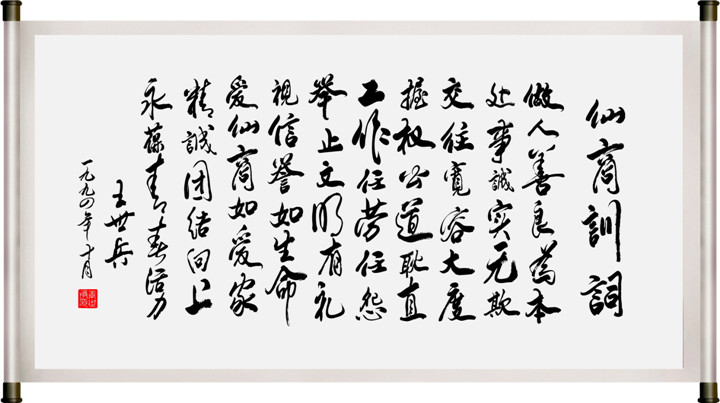 仙商訓詞
做人善良為本
处事誠实无欺
交往寬容大度
握权公道耿直
工作任劳任怨
举止文明有礼
視信誉如生命
爱仙商如爱家
精誠团结向上
永葆青春活力
王世兵
一九九四年十月